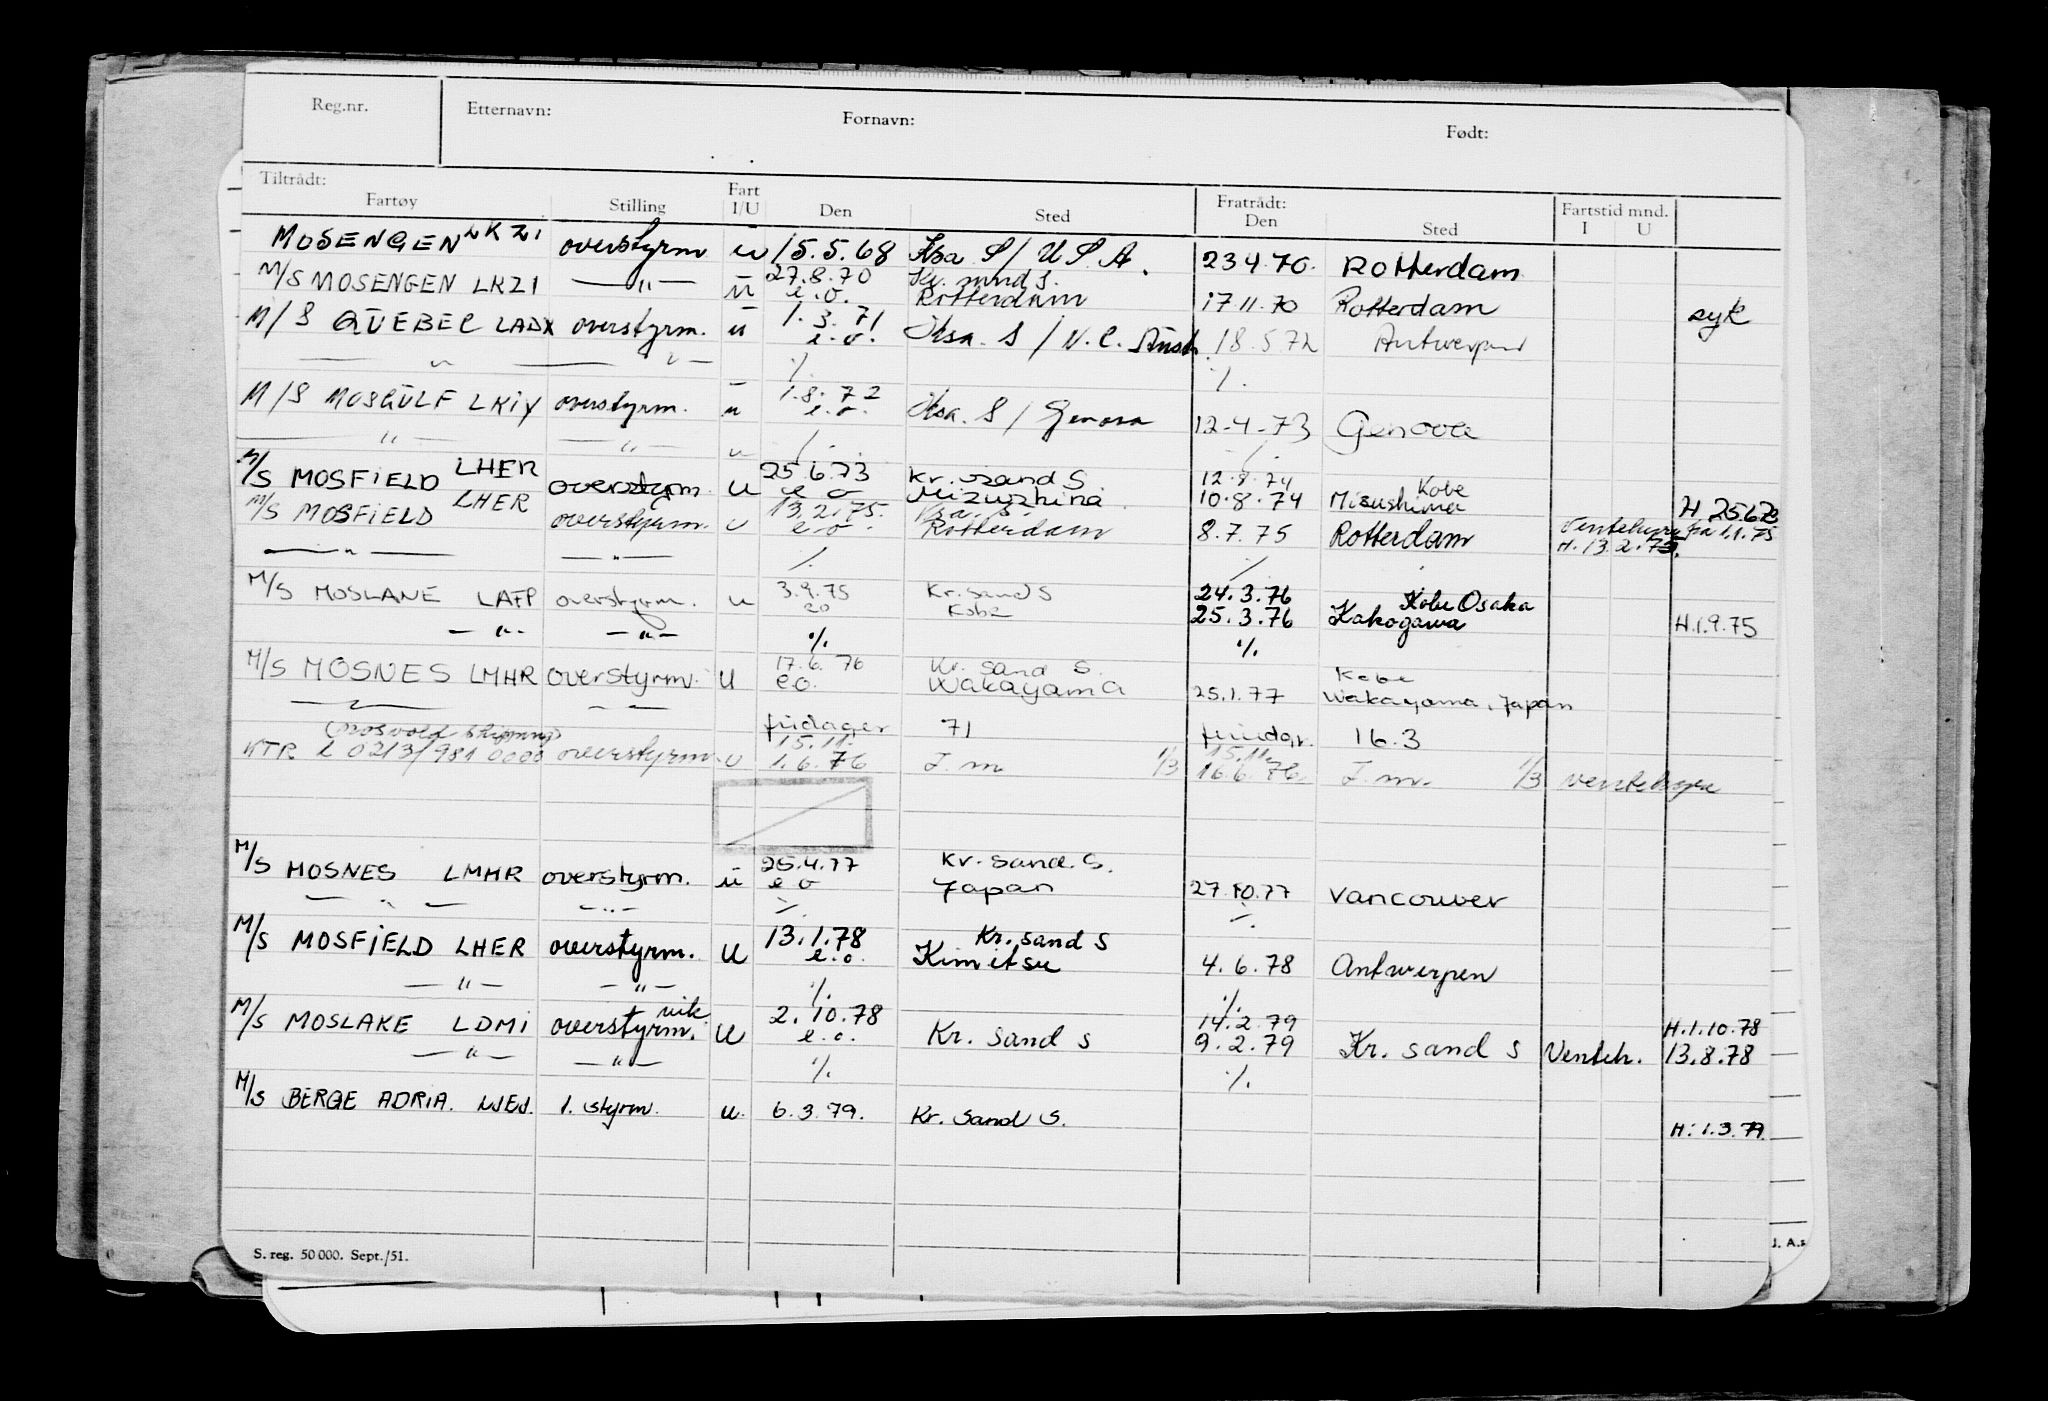 Reg.nr. Etternavn: Fornavn: Født:
Tiltrådt: Fartøy Stilling Fart I/U Den Sted Fratrådt: Den Sted Fartstid mnd. I U
MOSENGEN LKZI overstyrm u 15.5.68 Krsa S/ U S A. 23.4.70. Rotterdam
M/S MOSENGEN LKZI —"— u 27.8.70 e.o. Kr. sand S. Rotterdam 17.11.70 Rotterdam syk
M/S QUEBEC LADX overstyrm. u 1.3.71 e.o. Krsa. S / N.C. 18.5.72 Antwerpen
—"— —"— ·/. ·/.
M/S MOSGULF LKIY overstyrm. u 1.8.72 e.o. Krsa. S / Genova 12.4.73 Genova
—"— —"— " ·/. ·/.
M/S MOSFIELD LHER overstyrm. u 25.6.73 e o Kr. sand S Mizushina 12.8.74 10.8.74 Kobe Misushima H 25.6.73
M/S MOSFIELD LHER overstyrm. u 13.2.75. e.o. Krsa. S. Rotterdam 8.7.75 Rotterdam Ventehyre fra 1.1.75 H. 13.2.75.
—"— —"— ·/. ·/.
M/S MOSLANE LAFP overstyrm. u 3.9.75 20 Kr. sand S Kobe 24.3.76 25.3.76 Kobe Osaka Kakogawa H.1.9.75
—"— —"— ·/. ·/.
M/S MOSNES LMHR overstyrm. U 17.6.76 e.o. Kr. sand S. Wakayama 25.1.77 Kobe Wakayama, Japan
—"— —"—
(Mosvold Shipping) fridager 71 fridgr. 16.3
KTR L 0213/981 0000 overstyrm. u 15.11. 1.6.76 I.m 1/3 15.11. 16.6.76. I.m. 1/3 ventehyre
M/S MOSNES LMHR overstyrm. u 25.4.77 e o Kr. sand. S. Japan 27.10.77 Vancouver
—"— —"— ·/. ·/.
M/S MOSFIELD LHER overstyrm. U 13.1.78 e.o. Kr. sand S Kimitsu 4.6.78 Antwerpen
—"— —"— ·/. ·/.
M/S MOSLAKE LDMI overstyrm. vik U 2.10.78 e.o. Kr. sand S 14.2.79 9.2.79 Kr. sand S Venteh. H.1.10.78 13.8.78
—"— —"— ·/. ·/.
M/S BERGE ADRIA. LJEJ. 1. styrm. u. 6.3.79. Kr. sand S. H: 1.3.79.
S. reg. 50 000. Sept./51.
J. A.s